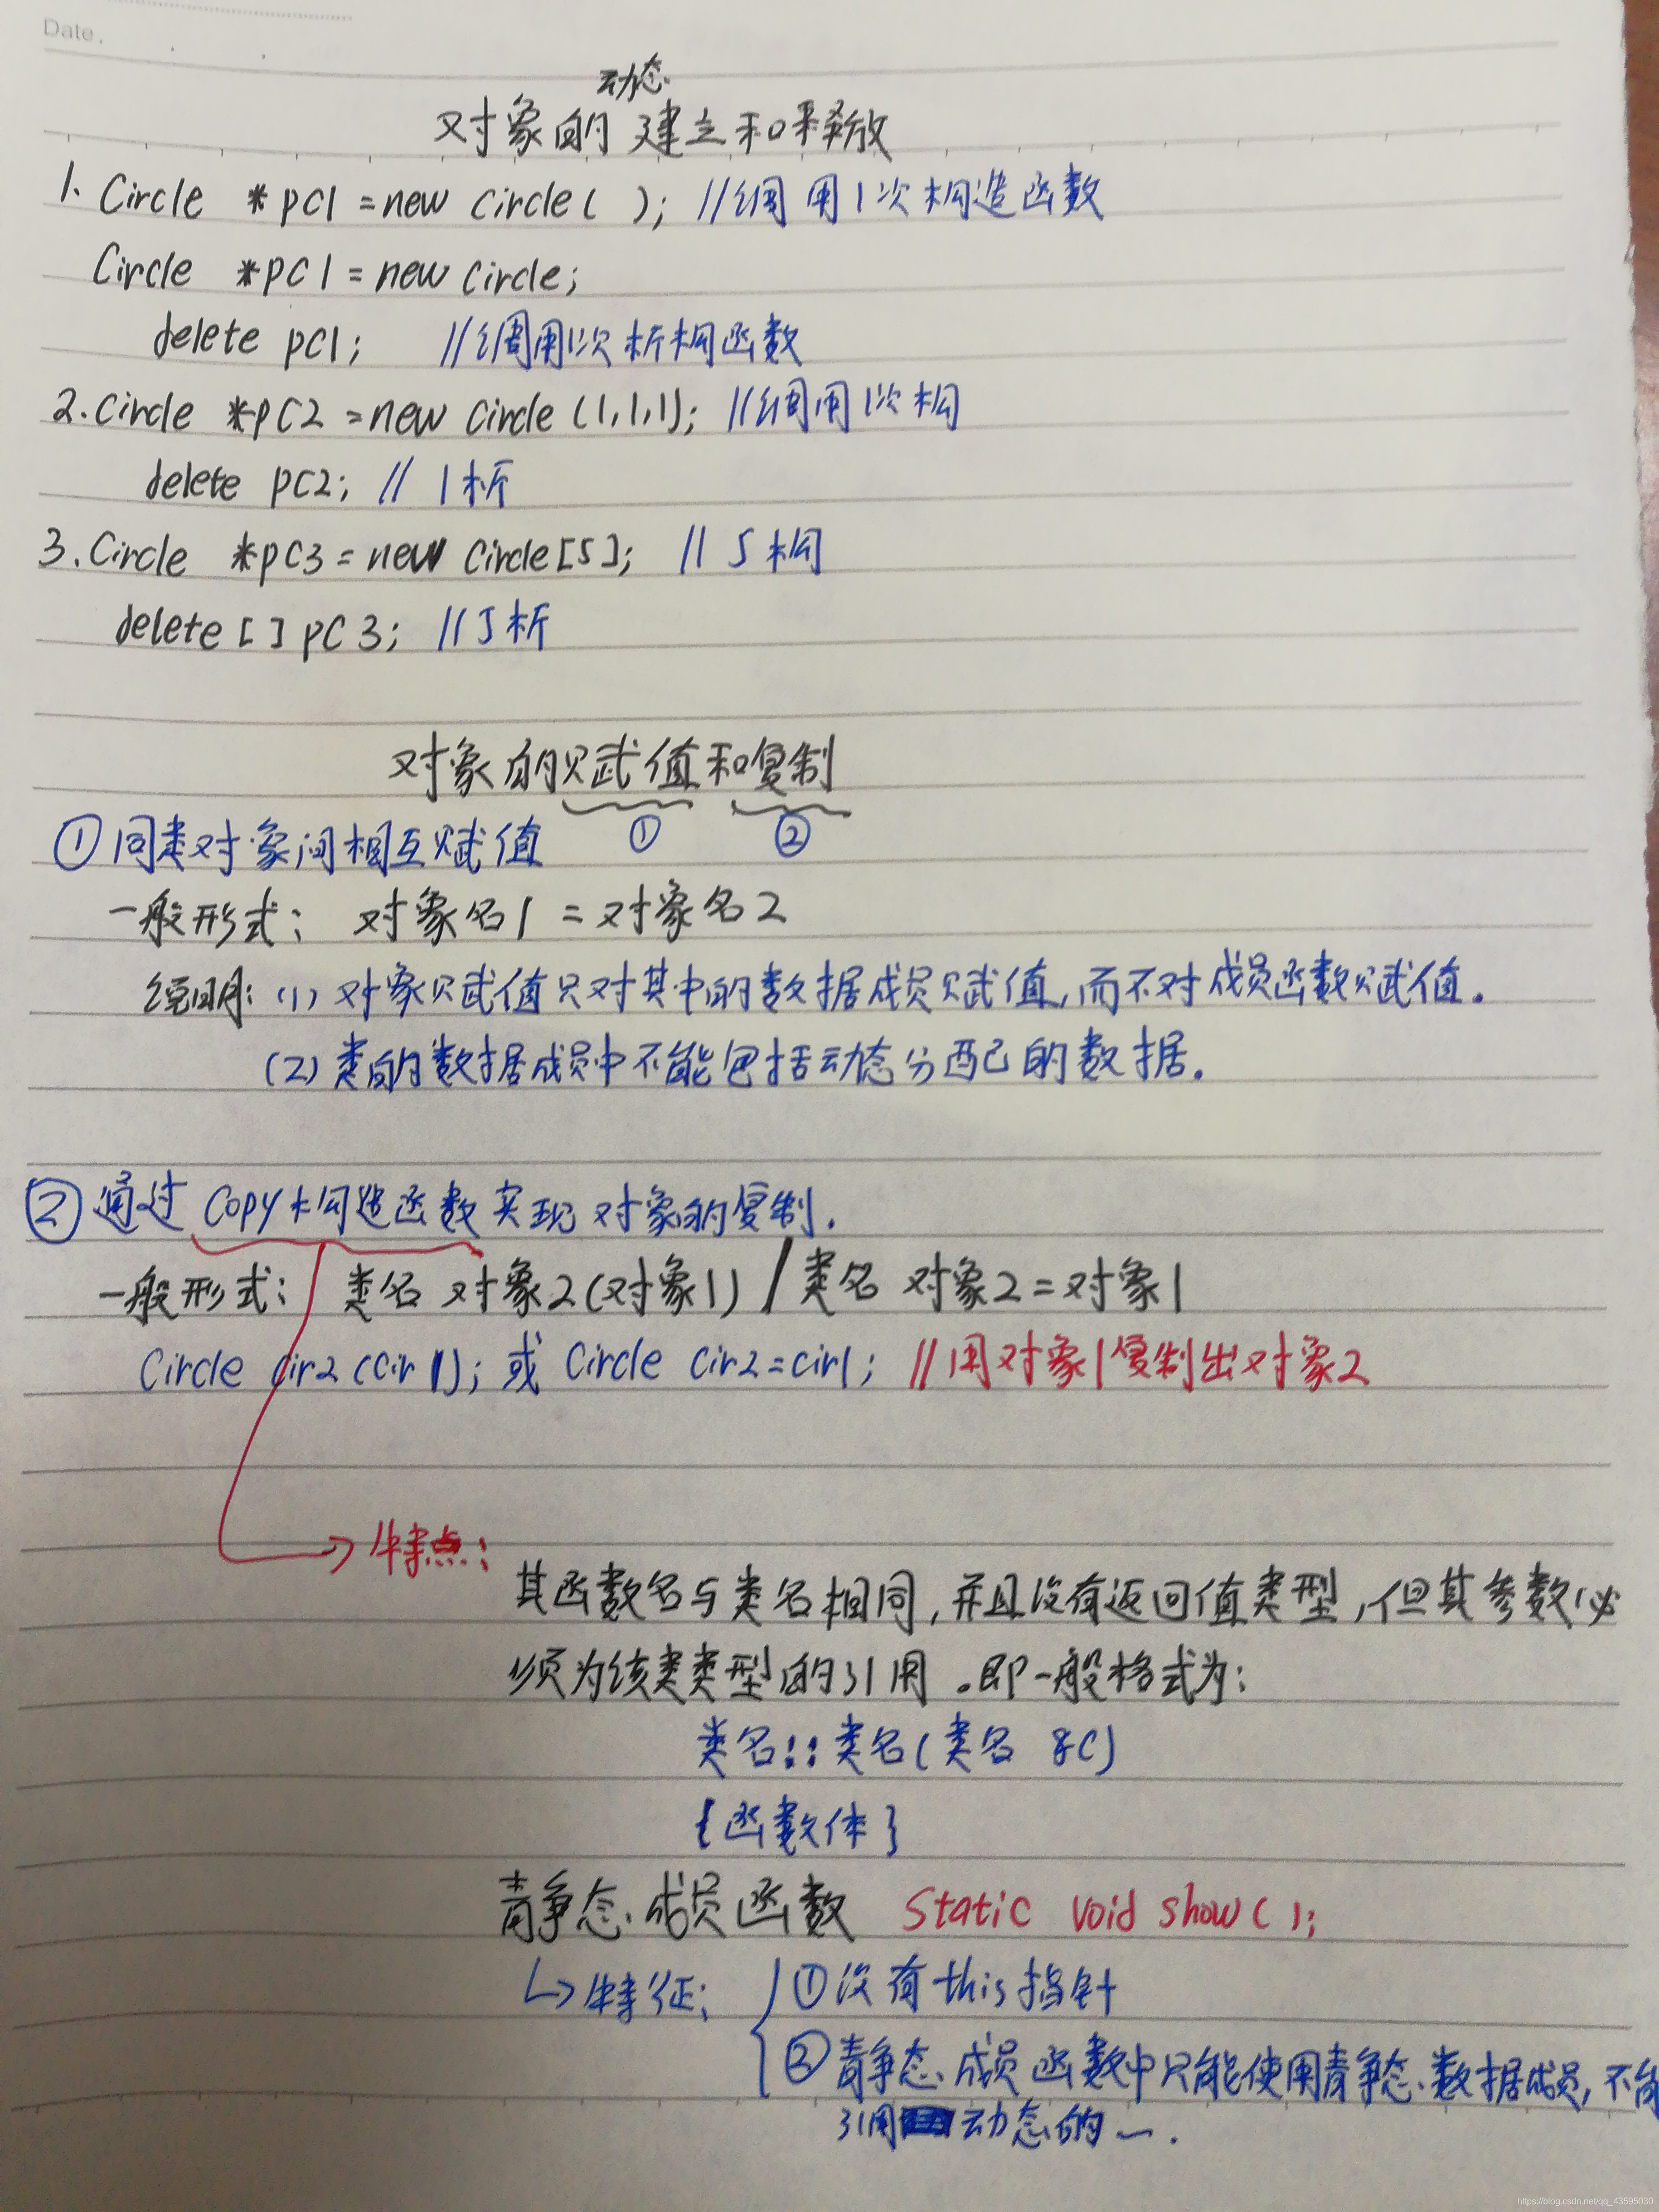 Date.
对象的动态建立和释放
1. Circle *pC1 = new Circle( ); //调用1次构造函数
Circle *pC1 = new Circle;
delete pC1; //调用1次析构函数
2. Circle *pC2 = new Circle (1,1,1); //调用1次构
delete pC2; // 1析
3. Circle *pC3 = new Circle[5]; // 5构
delete[ ] pC3; // 5析
对象的赋值和复制
① ②
①同类对象间相互赋值
一般形式: 对象名1 = 对象名2
说明: (1) 对象赋值只对其中的数据成员赋值,而不对成员函数赋值.
(2) 类的数据成员中不能包括动态分配的数据.
② 通过 Copy构造函数实现对象的复制.
一般形式: 类名 对象2(对象1) / 类名 对象2 = 对象1
Circle Cir2 (Cir1); 或 Circle Cir2 = cir1; //用对象1复制出对象2
特点:
其函数名与类名相同,并且没有返回值类型,但其参数必
须为该类类型的引用.即一般格式为:
类名::类名(类名 &C)
{函数体}
静态成员函数 Static void show( );
特征: ①没有this指针
②静态成员函数中只能使用静态数据成员,不能
引用动态的一.
https://blog.csdn.net/qq_43595030